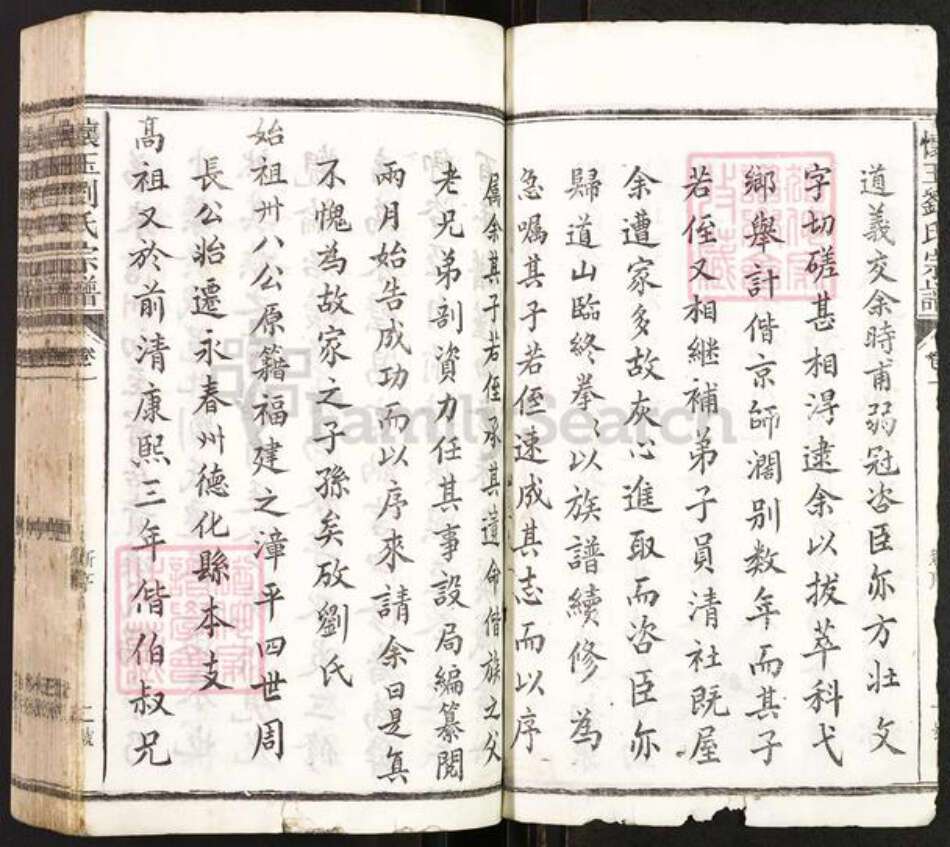 道義交余時甫弱冠咨臣亦方壯文
字切磋甚相得逮余以拔萃科弋
鄉舉計偕京師濶別数年而其子
若侄又相繼補弟子員清社既屋
余遭家多故灰心進取而咨臣亦
歸道山臨終拳〻以族譜續修為
急嘱其子若侄速成其志而以序
属余其子若侄承其遺命偕族之父
老兄弟剖資力任其事設局編纂閱
兩月始告成功而以序來請余曰是真
不愧為故家之子孫矣攷劉氏
始祖卅八公原籍福建之漳平四世周
長公始遷永春州德化縣本支
高祖又於前清康熙三年偕伯叔兄
懷玉劉氏宗譜
卷一
新序
二號
懷玉劉氏宗譜
FamilySearch